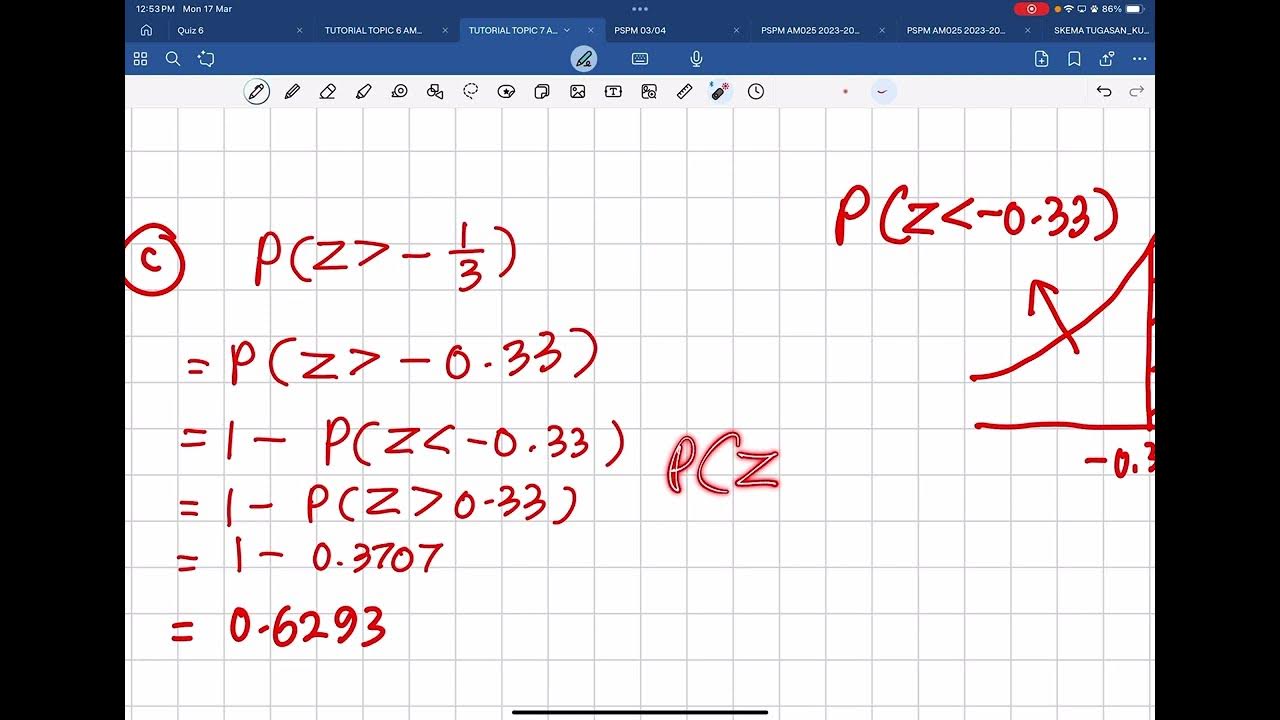 12:53 PM Mon 17 Mar
86%
Quiz 6
TUTORIAL TOPIC 6 AM...
TUTORIAL TOPIC 7 A...
PSPM 03/04
PSPM AM025 2023-20...
PSPM AM025 2023-20...
SKEMA TUGASAN_KU...
P(Z<-0.33)
c P(Z>-1/3)
= P(Z>-0.33)
= 1 - P(Z<-0.33)
P(Z
-0.3
= 1 - P(Z>0.33)
= 1 - 0.3707
= 0.6293